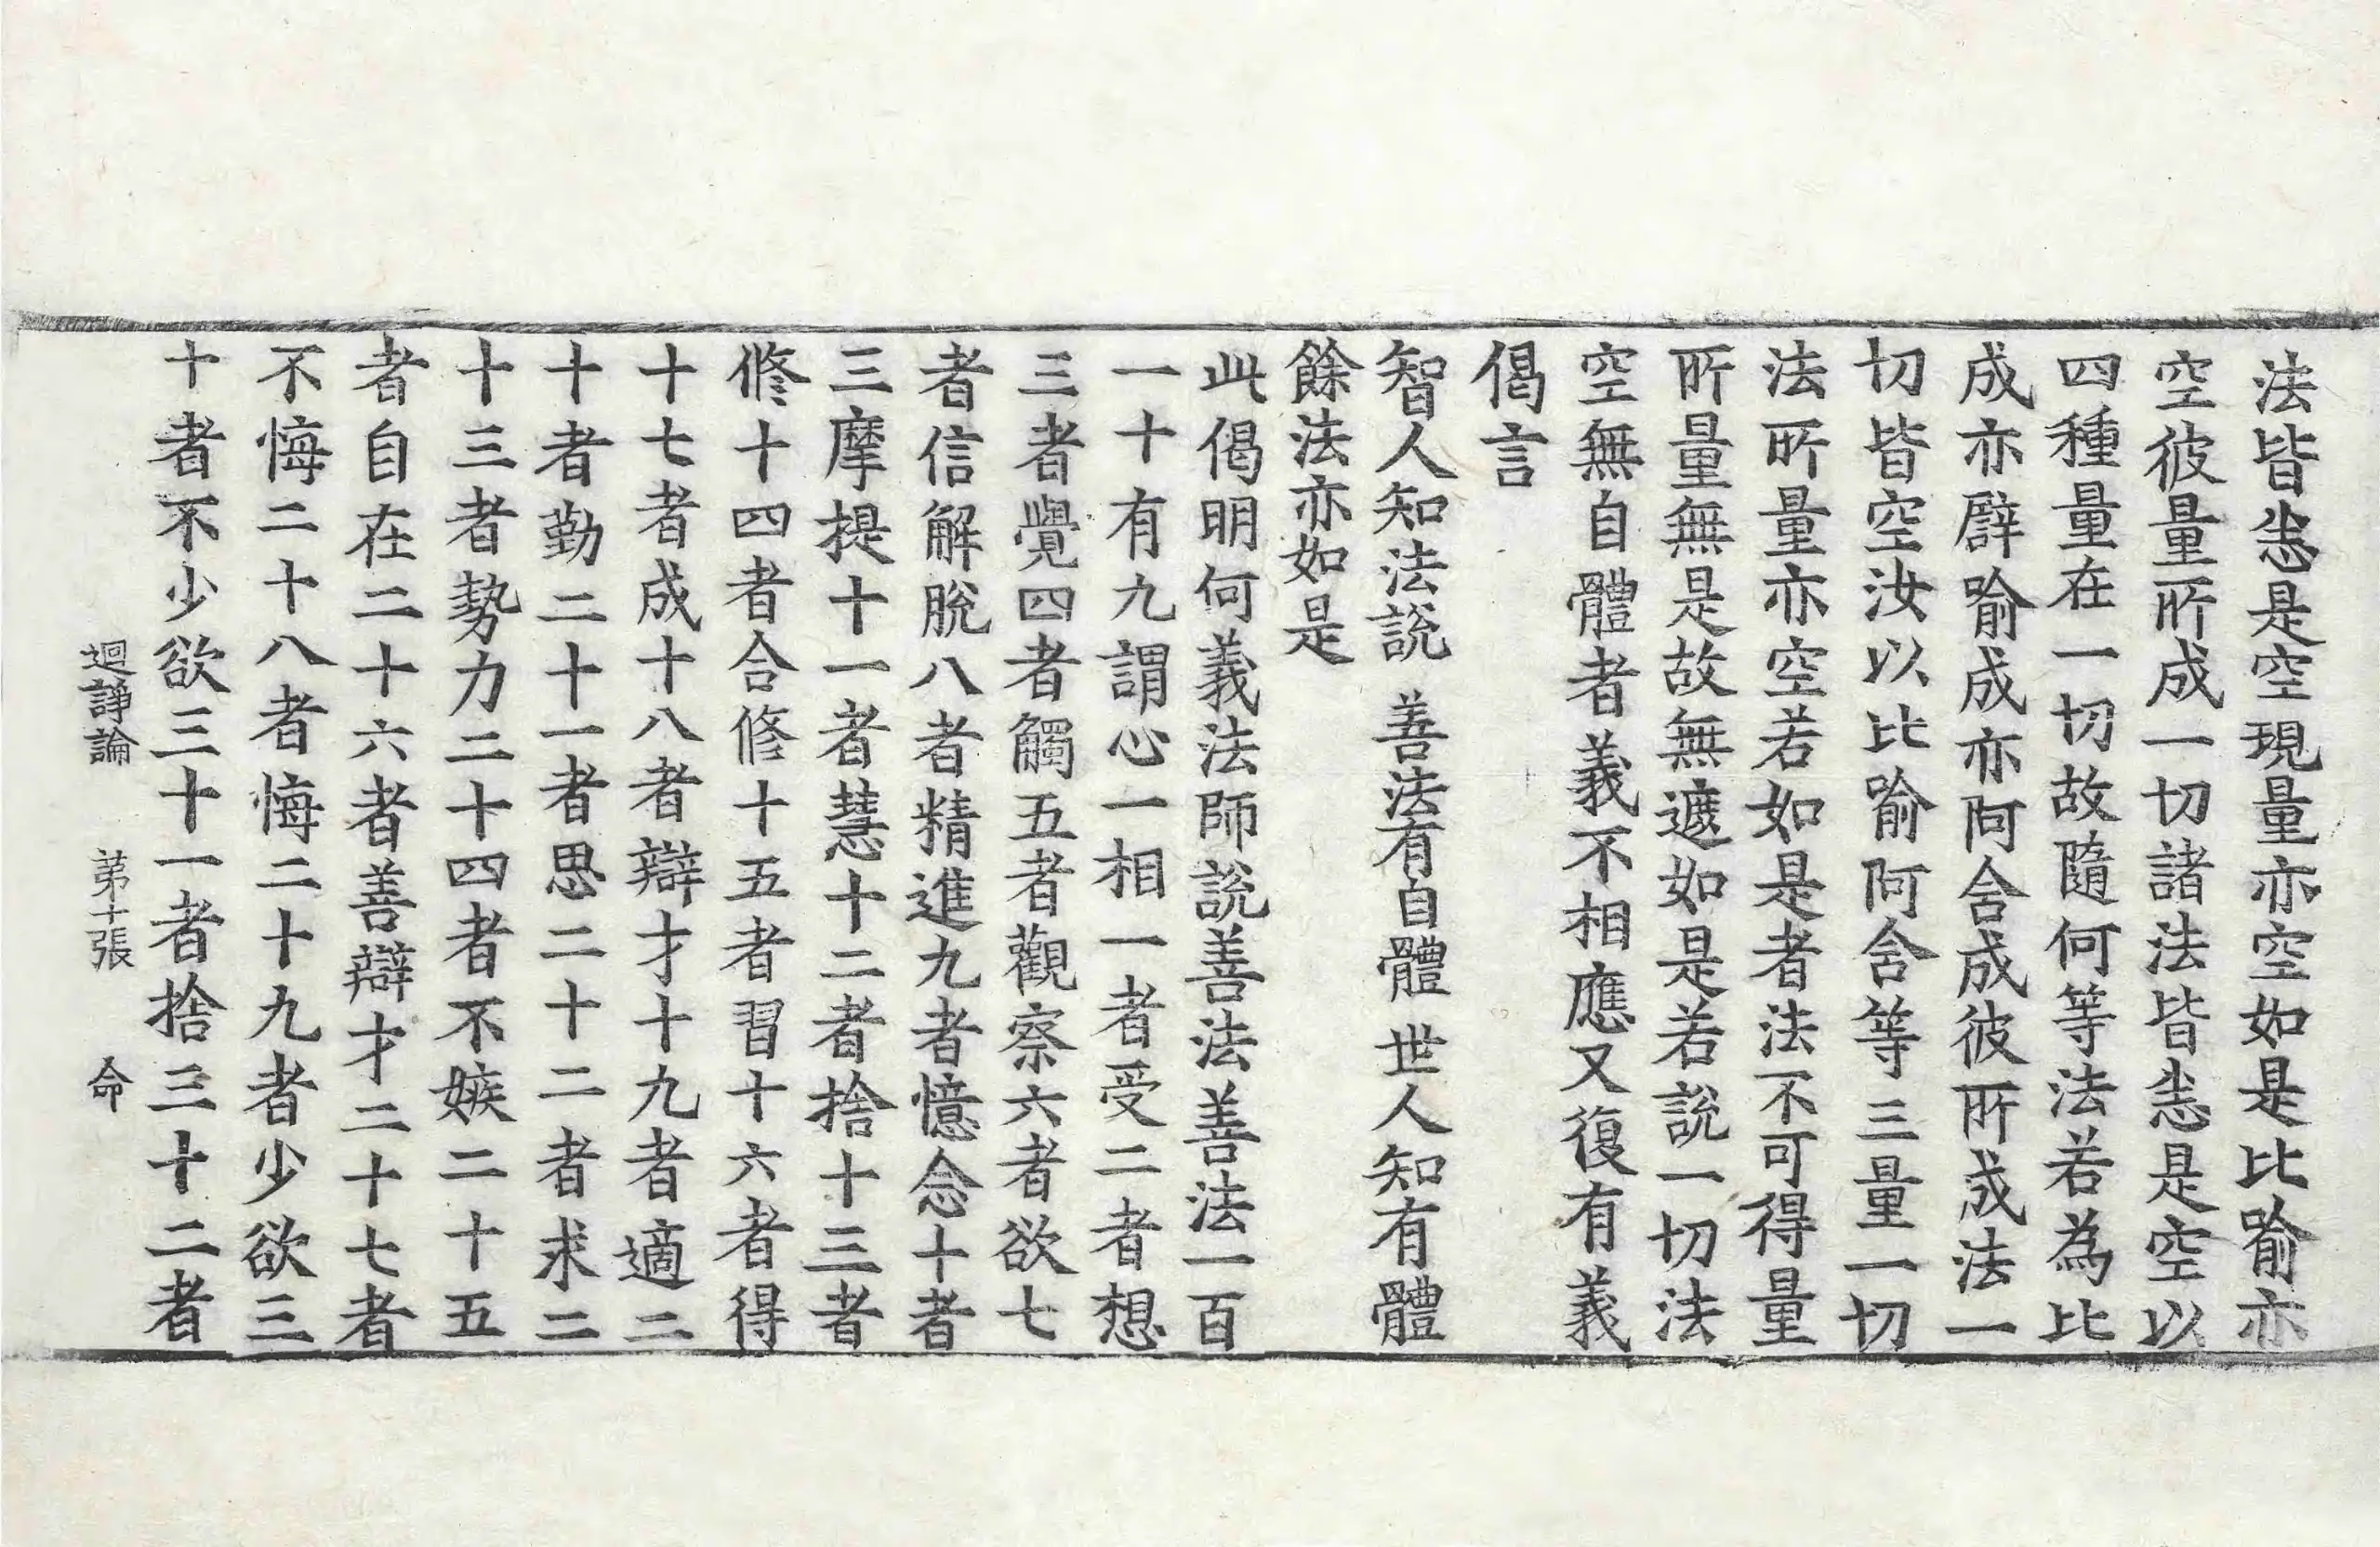 法皆悉是空現量亦空如是比喻亦
空彼量所成一切諸法皆悉是空以
四種量在一切故隨何等法若為比
成亦譬喻成亦阿含成彼所成法一
切皆空汝以比喻阿含等三量一切
法所量亦空若如是者法不可得量
所量無是故無遮如是若說一切法
空無自體者義不相應又復有義
偈言
智人知法說 善法有自體 世人知有體
餘法亦如是
此偈明何義法師說善法善法一百
一十有九謂心一相一者受二者想
三者覺四者觸五者觀察六者欲七
者信解脫八者精進九者憶念十者
三摩提十一者慧十二者捨十三者
修十四者合修十五者習十六者得
十七者成十八者辯才十九者適二
十者勤二十一者思二十二者求二
十三者勢力二十四者不嫉二十五
者自在二十六者善辯才二十七者
不悔二十八者悔二十九者少欲三
十者不少欲三十一者捨三十二者
迴諍論 第十張 命